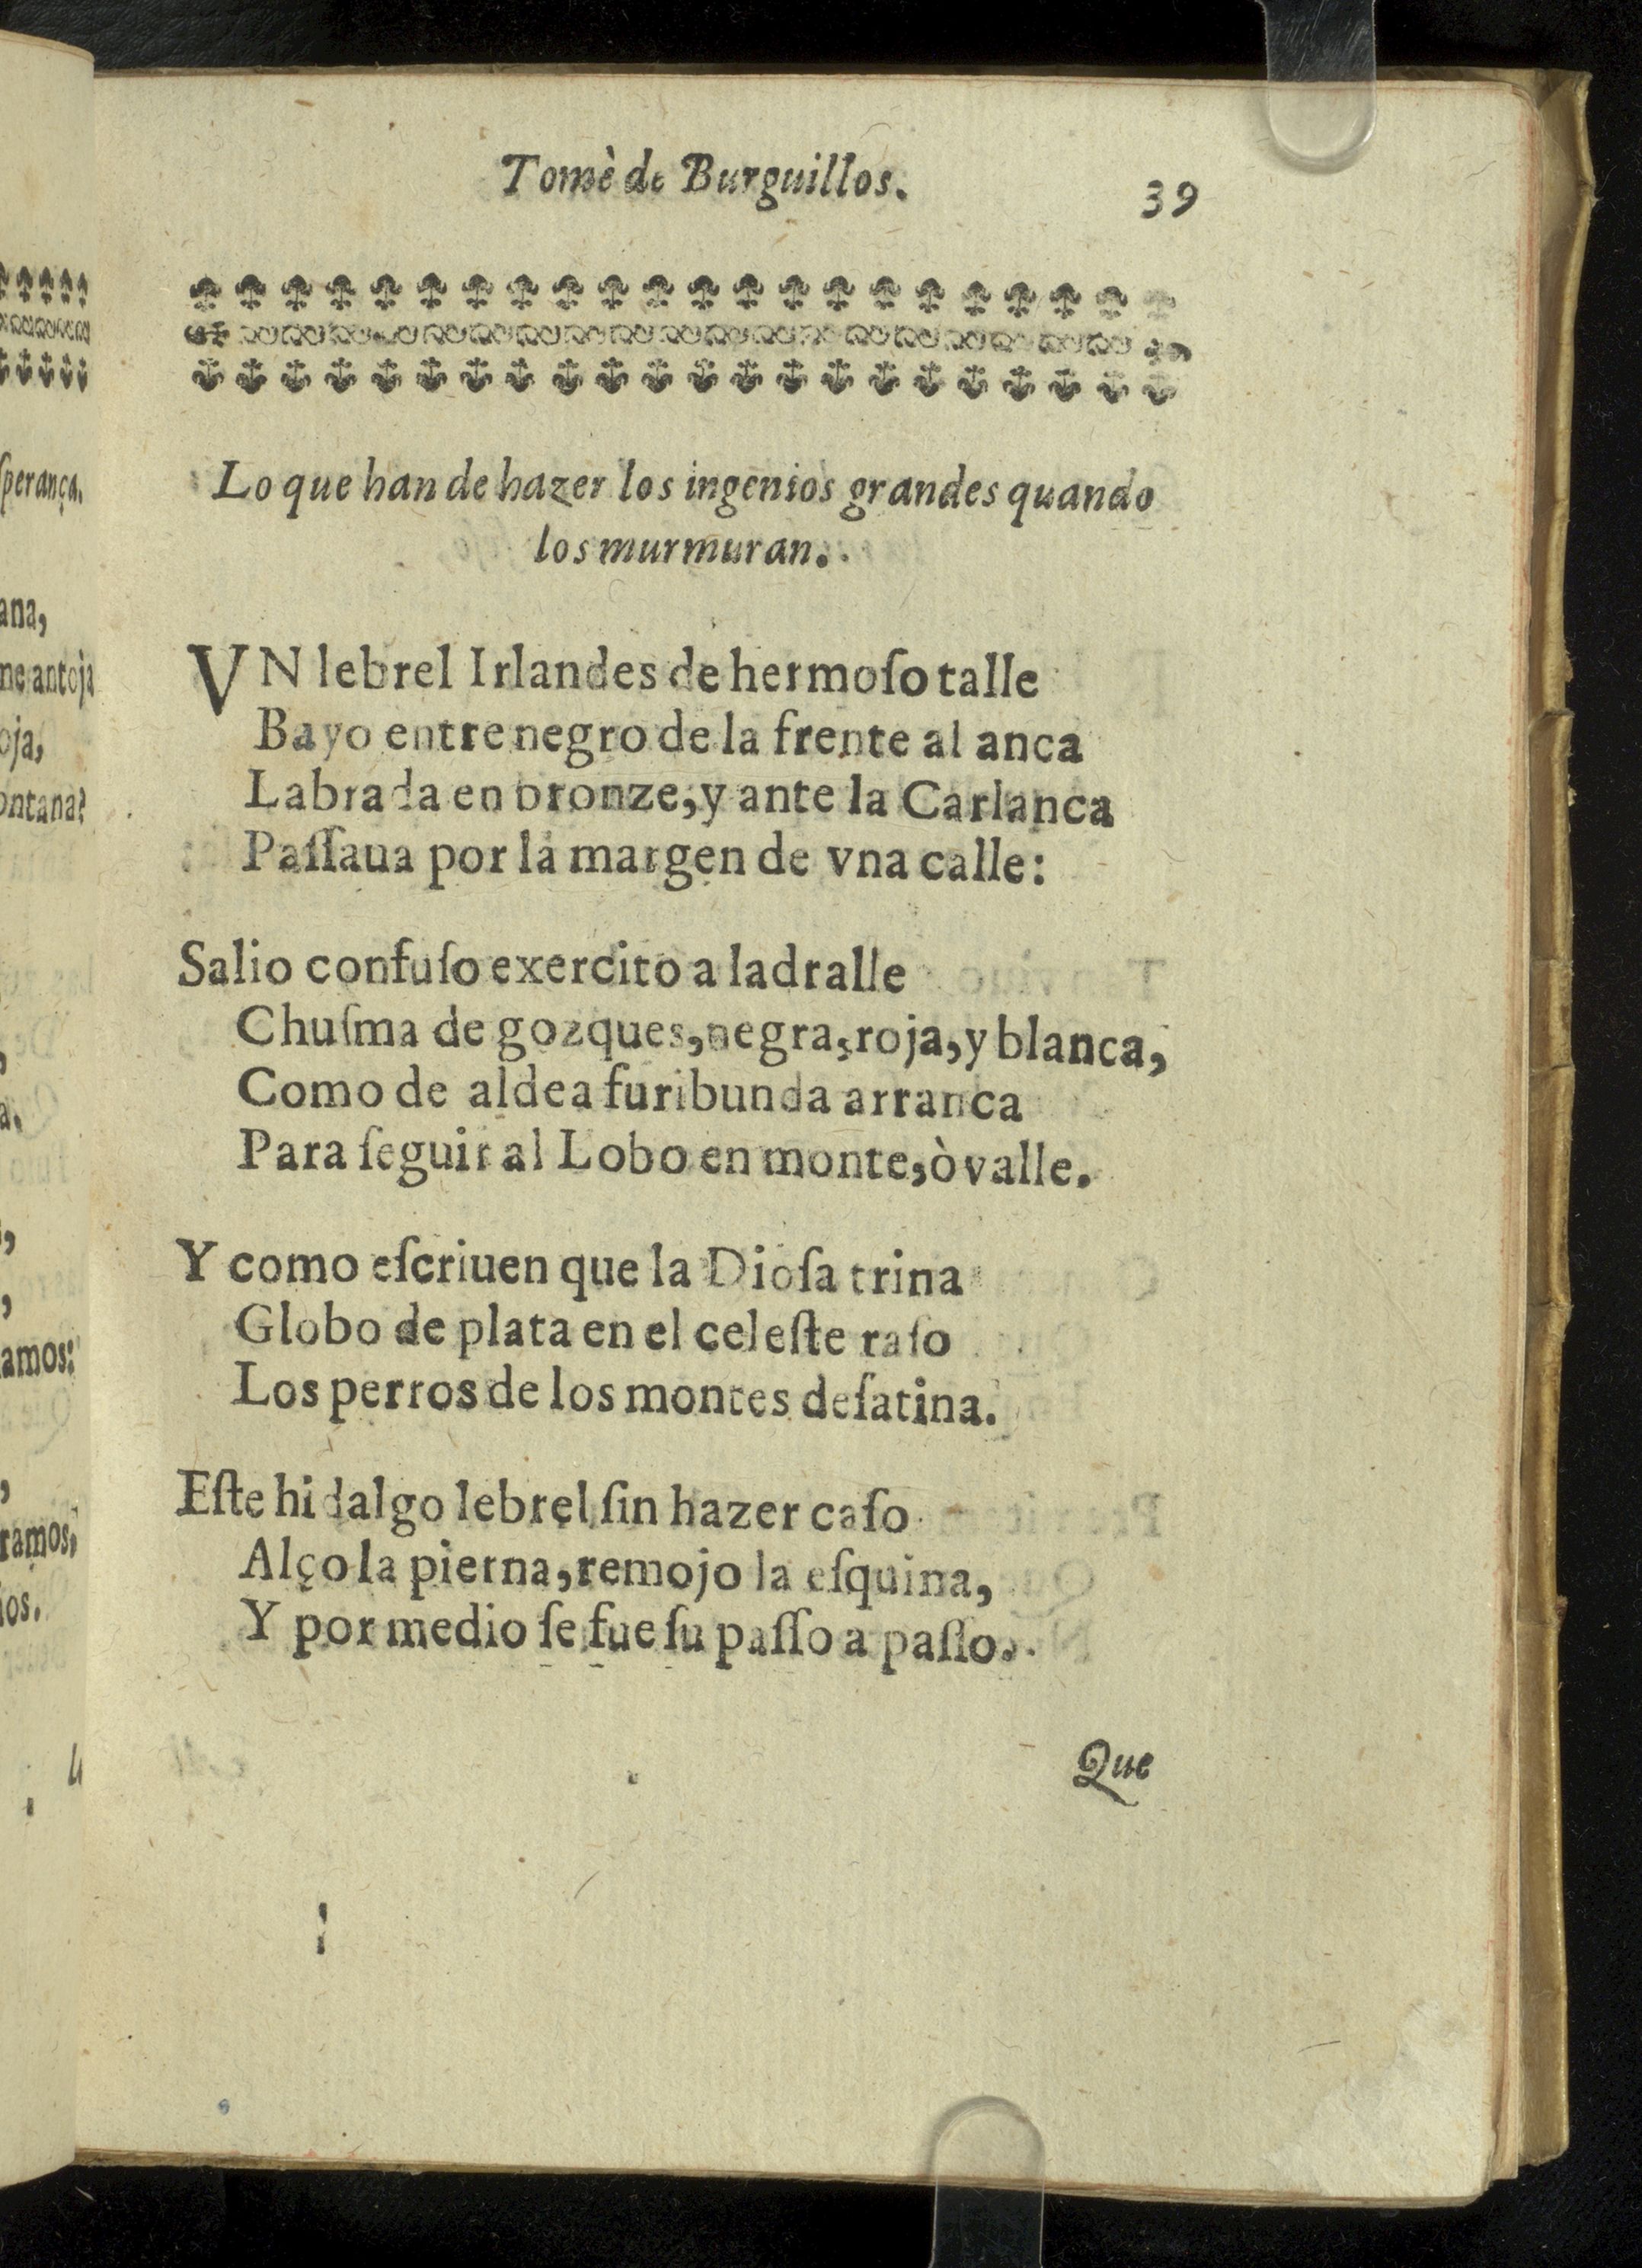 Tomè de Burguillos.
39
Lo que han de hazer los ingenios grandes quando
los murmuran.
VN lebrel Irlandes de hermoſo talle
Bayo entre negro de la frente al anca
Labrada en bronze, y ante la Carlanca
Paſſaua por la margen de vna calle:
Salio confuſo exercito a ladralle
Chuſma de gozques, negra, roja, y blanca,
Como de aldea furibunda arranca
Para ſeguir al Lobo en monte, ò valle.
Y como eſcriuen que la Dioſa trina
Globo de plata en el celeſte raſo
Los perros de los montes deſatina.
Eſte hidalgo lebrel ſin hazer caſo
Alço la pierna, remojo la eſquina,
Y por medio ſe fue ſu paſſo a paſſo.
Que
ſperança.
ana,
me antoja
oja,
ontana?
amos:
ramos,